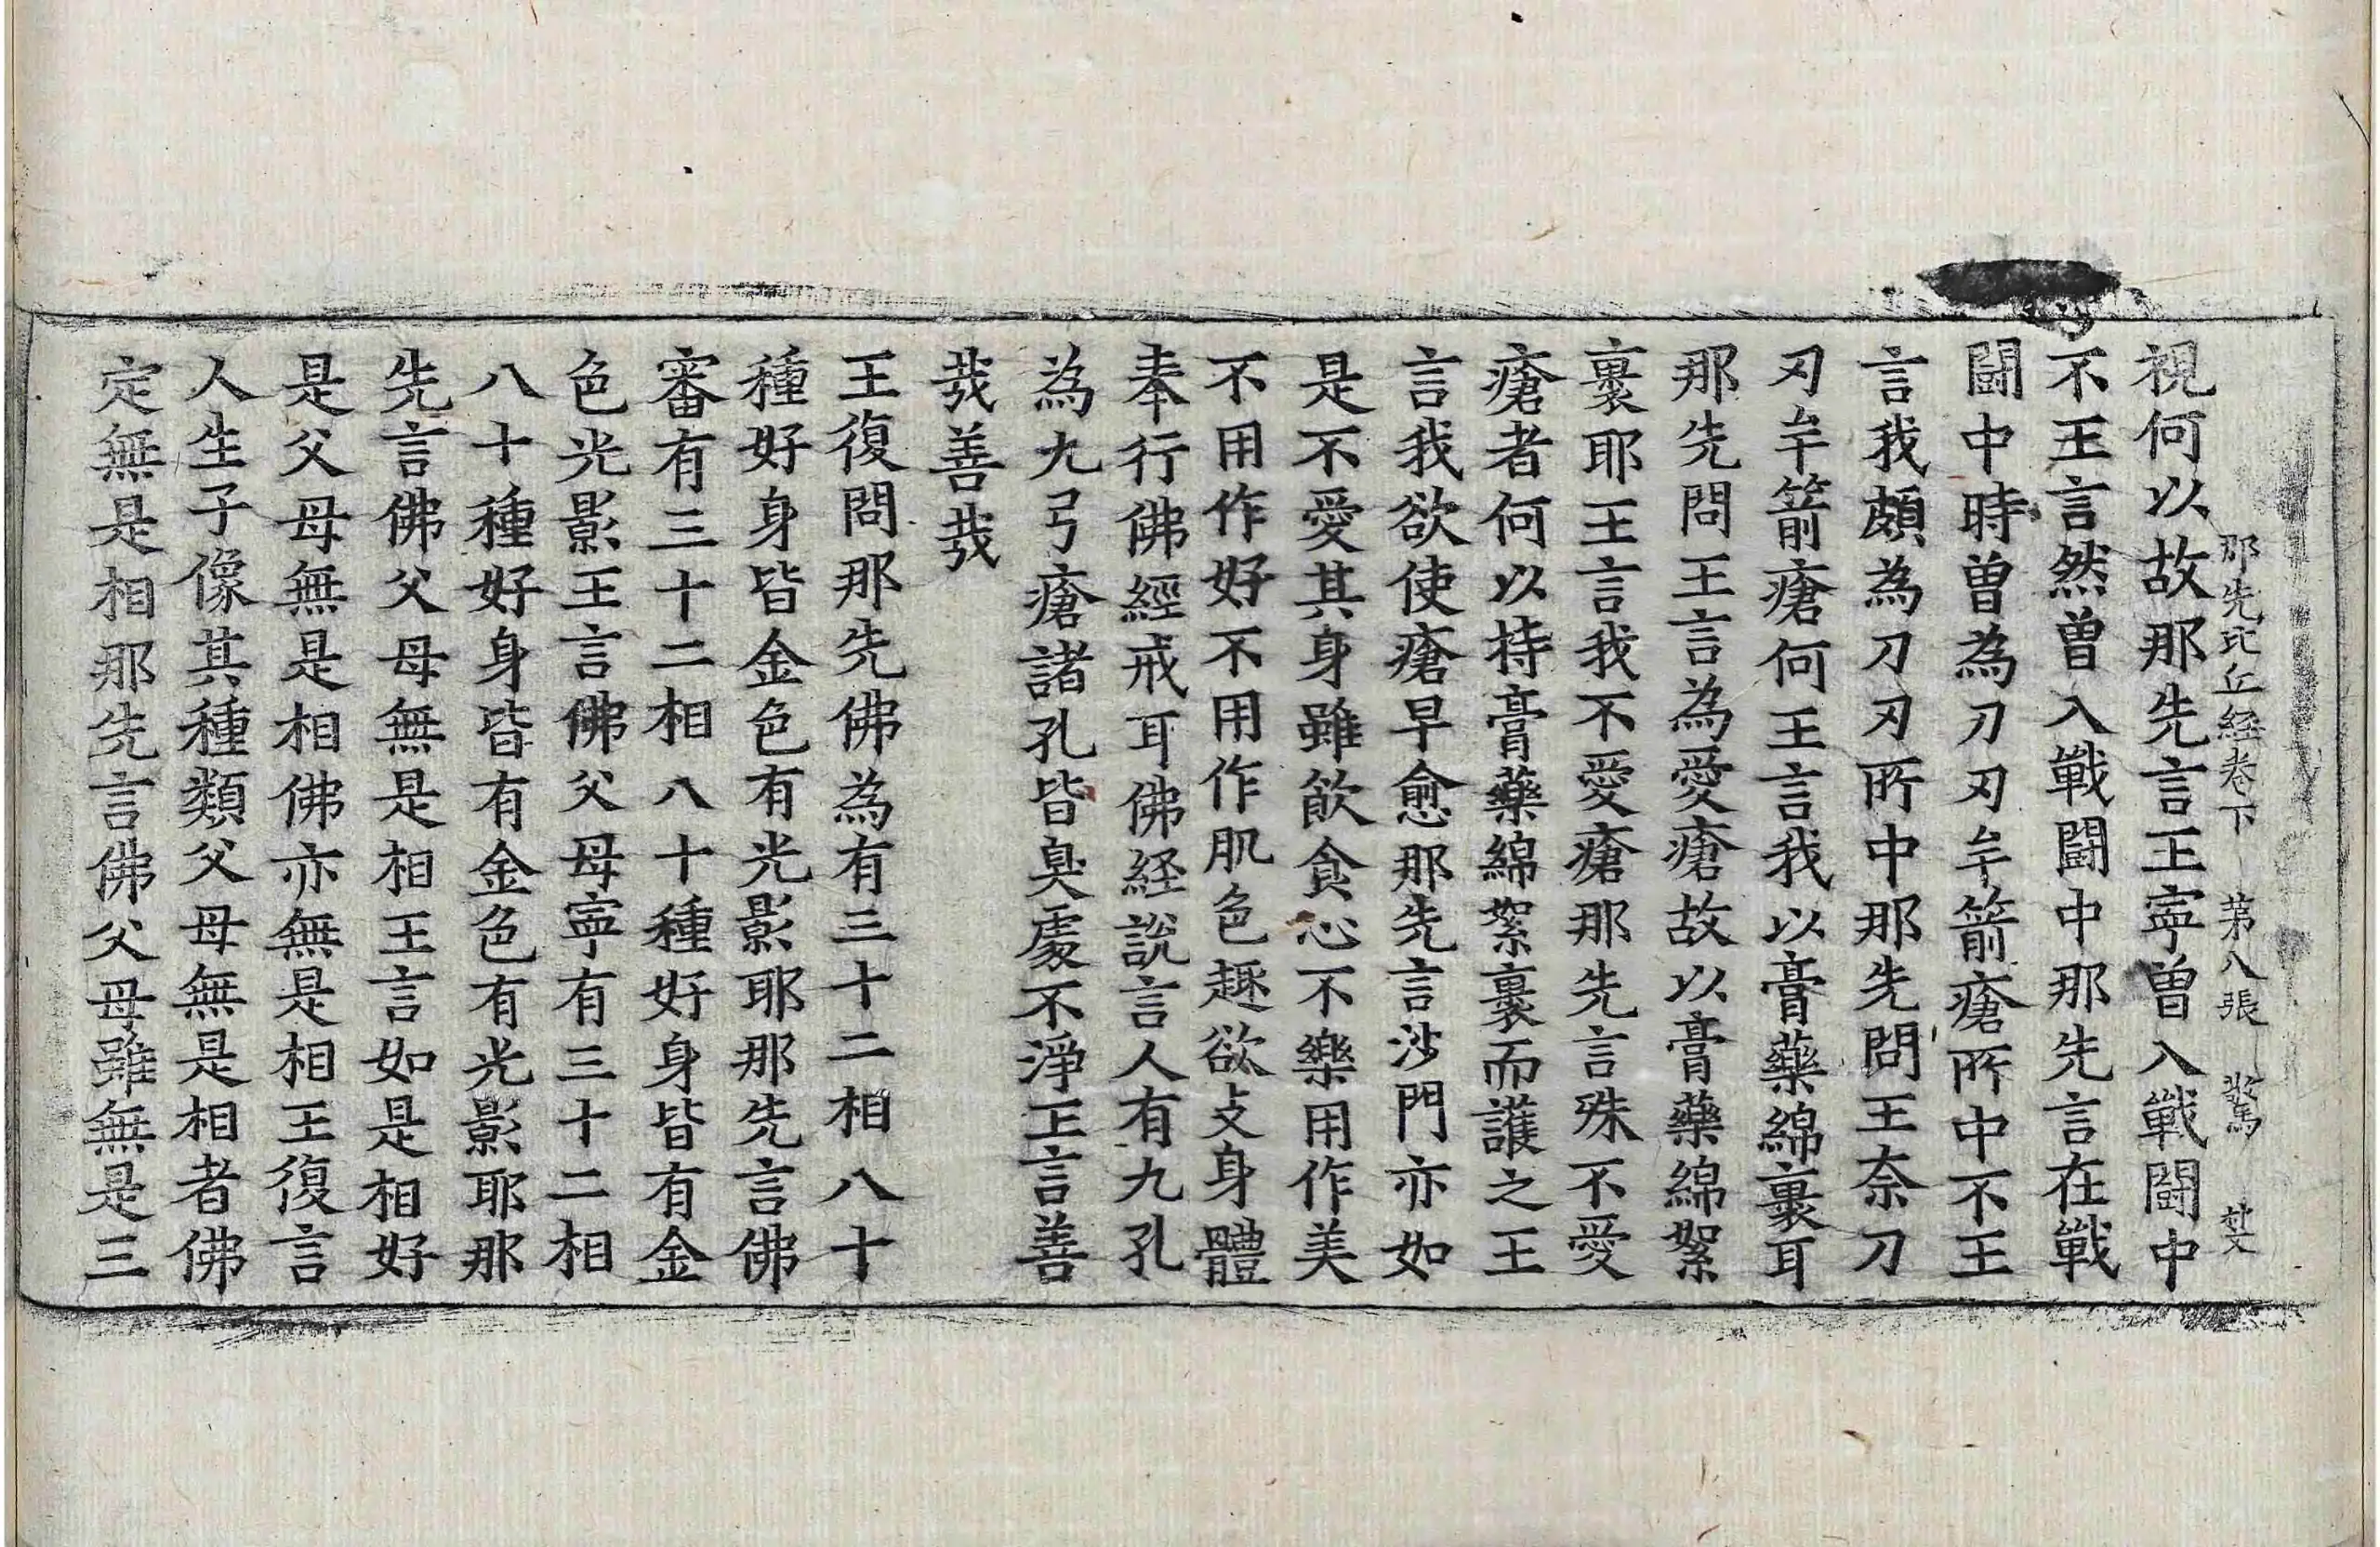 那先比丘経卷下 第八張 驚 𡘜
視何以故那先言王寧曽入戰鬪中
不王言然曽入戰鬪中那先言在戰
鬪中時曽為刀刃牟箭瘡所中不王
言我頗為刀刃所中那先問王柰刀
刃牟箭瘡何王言我以膏藥綿裹耳
那先問王言為愛瘡故以膏藥綿絮
裹耶王言我不愛瘡那先言殊不愛
瘡者何以持膏藥綿絮裹而護之王
言我欲使瘡早愈那先言沙門亦如
是不愛其身雖飮食心不樂用作美
不用作好不用作肌色趣欲支身體
奉行佛經戒耳佛経說言人有九孔
為九弓瘡諸孔皆臭處不淨王言善
㦲善㦲
王復問那先佛為有三十二相八十
種好身皆金色有光影耶那先言佛
審有三十二相八十種好身皆有金
色光影王言佛父母寧有三十二相
八十種好身皆有金色有光影耶那
先言佛父母無是相王言如是相好
是父母無是相佛亦無是相王復言
人生子像其種類父母無是相者佛
定無是相那先言佛父母雖無是三